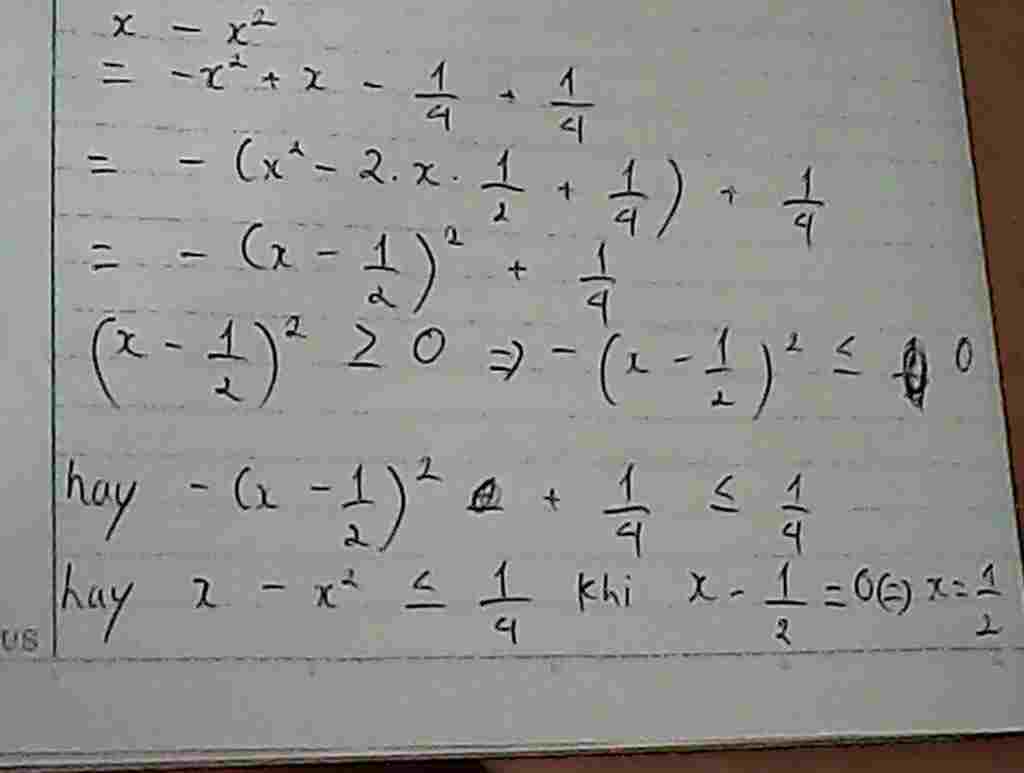 x - x²
= -x² + x - 1/4 + 1/4
= - (x² - 2.x. 1/2 + 1/4) + 1/4
= - (x - 1/2)² + 1/4
(x - 1/2)² ≥ 0 => - (x - 1/2)² ≤ 0
hay - (x - 1/2)² + 1/4 ≤ 1/4
hay x - x² ≤ 1/4 khi x - 1/2 = 0 (=) x = 1/2